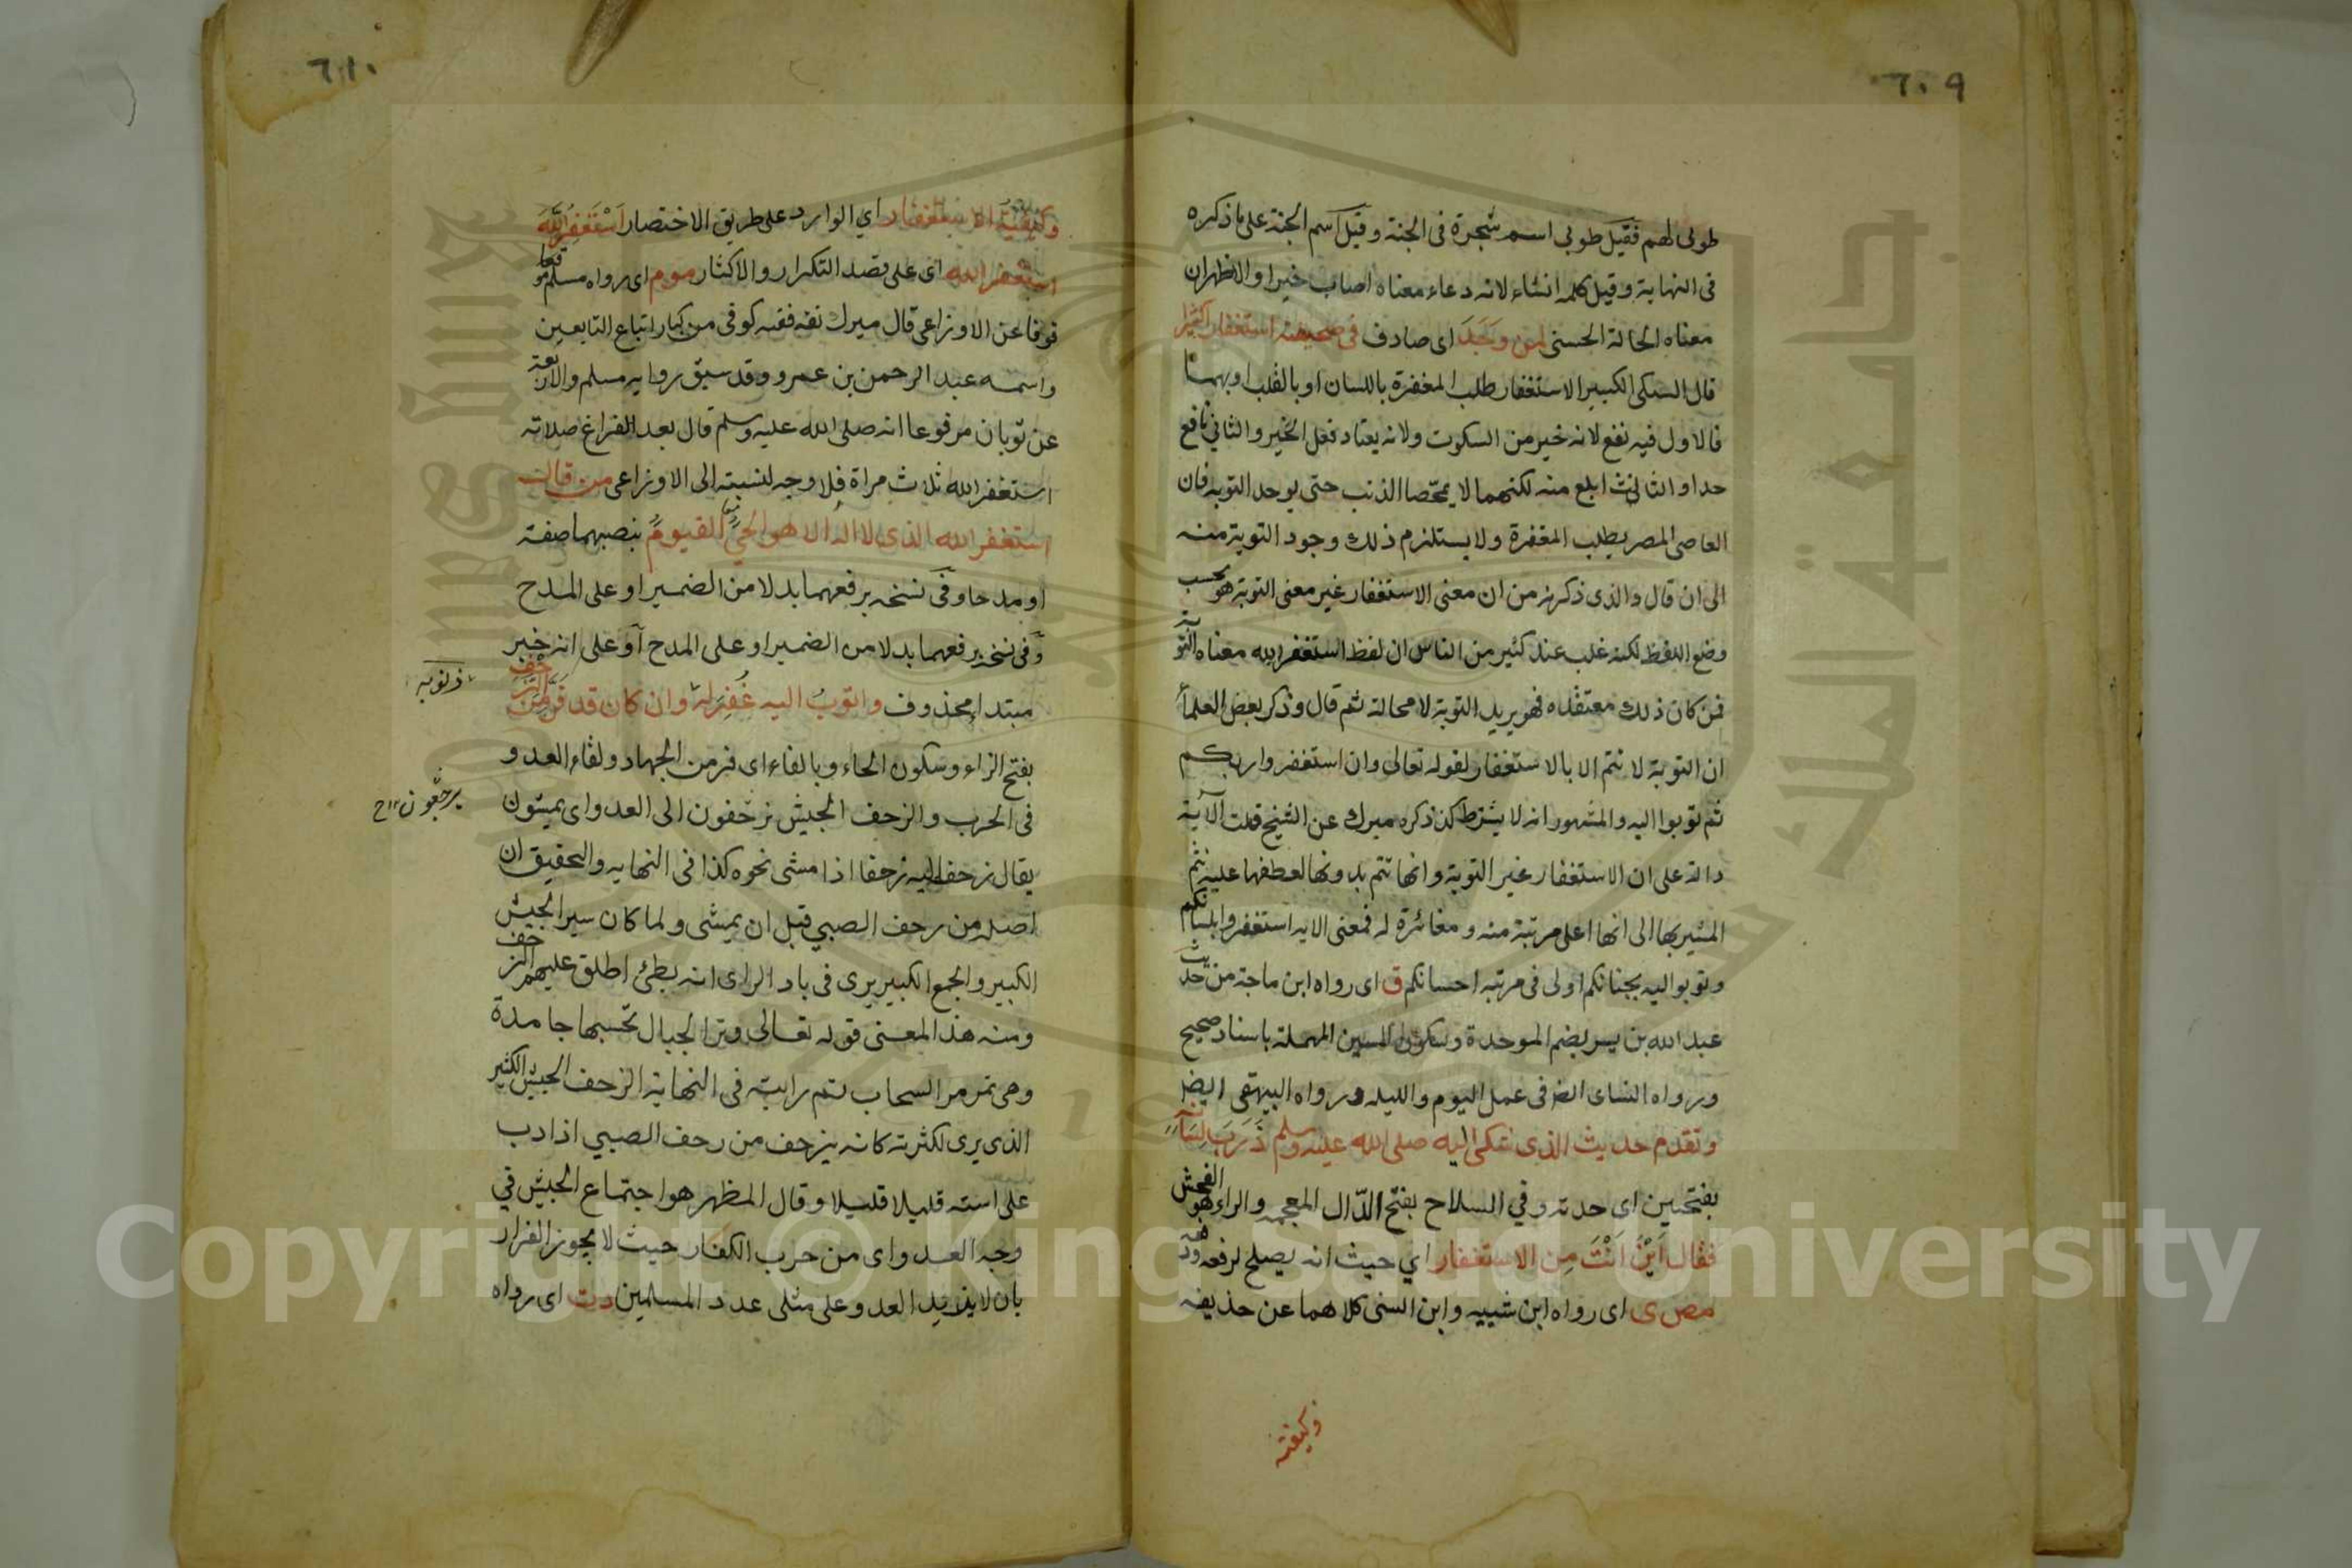 ٦٠٩
طوبى لهم فقيل طوبى اسم شجرة في الجنة وقيل اسم الجنة على ما ذكره
في النهاية وقيل كلمه انشاء لانه دعاء معناه اصاب خيرا والاظهر ان
معناه الحالة الحسنى لمن وَجَدَ اى صادف في صحيفته استغفارا كثيرا
قال السبكى الكبير الاستغفار طلب المغفرة باللسان او بالقلب او بهما
فالاول فيه نفع لانه خير من السكوت ولانه يعتاد فعل الخير والثاني نافع
جدا والثالث ابلغ منه لكنهما لا يمحّصا الذنب حتى يوجد التوبه فان
العاصى المصر يطلب المغفرة ولا يستلزم ذلك وجود التوبة منه
الى ان قال والذى ذكرته من ان معنى الاستغفار غير معنى التوبة هو بحسب
وضع اللفظ لكنه غلب عند كثير من الناس ان لفظ استغفر الله معناه التوبة
فمن كان ذلك معتقده فهو يريد التوبة لا محالة ثم قال وذكر بعض العلماء
ان التوبة لا تتم الا بالاستغفار لقوله تعالى وان استغفروا ربكم
ثم توبوا اليه والمشهور انه لا يشترط كذا ذكره ميرك عن الشيخ قلت الآية
دالة على ان الاستغفار غير التوبة وانها تتم بدونها لعطفها عليه بثم
المشير بها الى انها اعلى مرتبة منه ومغائرة له فمعنى الايه استغفروا بلسانكم
وتوبوا اليه بجنانكم اولى في مرتبه احسانكم ق اى رواه ابن ماجة من حديث
عبد الله بن بسر بضم الموحدة وسكون السين المهملة باسناد صحيح
ورواه النساى ايضا فى عمل اليوم والليله ورواه البيهقى ايضا
وتقدم حديث الذى شكى اليه صلى الله عليه وسلم ذَرَبَ لِسَانِهِ
بفتحتين اى حدته وفي السلاح بفتح الدّال المعجمه والراء هو الفحش
فقال اَيْنَ اَنْتَ مِن الاستغفار اي حيث انه يصلح لرفعه ودفعه
مص ى اى رواه ابن شيبه وابن السنى كلاهما عن حذيفه
وكيفية
٦١٠
وكيفية الاستغفار اي الوارد على طريق الاختصار اَسْتَغْفِرُ اللهَ
استغفر الله اى على قصد التكرار والاكثار مو م اى رواه مسلم موقعا
قوفا عن الاوزاعى قال ميرك ثقه فقيه كوفى من كبار اتباع التابعين
واسمه عبد الرحمن بن عمرو وقد سبق روايه مسلم والاربعة
عن ثوبان مرفوعا انه صلى الله عليه وسلم قال بعد الفراغ صلاته
استغفر الله ثلاث مراة فلا وجه لنسبته الى الاوزاعى من قال
استغفر الله الذى لا اله الا هو الحيُّ القيومُ بنصبهما صفة
او مدحا وفي نسخه برفعهما بدلا من الضمير او على المدح
وفى نسخه برفعهما بدلا من الضمير او على المدح او على انه خبر
مبتدا محذوف واتوبُ اليه غُفِرَ له وان كان قد فَرَّ مِنَ الزحف
ذنوبه
بفتح الزاء وسكون الحاء وبالفاء اى فر من الجهاد ولقاء العدو
في الحرب والزحف الجيش يزحفون الى العدو اى يمشون
يرجعون ١٢ح
يقال زحف اليه زحفا اذا مشى نحوه كذا فى النهايه والتحقيق ان
اصله من زحف الصبي قبل ان يمشى ولما كان سير الجيش
الكبير والجمع الكبير يرى فى باد الراى انه بطئ اطلق عليهم الزحف
ومنه هذا المعنى قوله تعالى وترا الجبال تحسبها جامدة
وهى تمر مر السحاب ثم رايته فى النهاية الزحف الجيش الكثير
الذى يرى لكثرته كانه يزحف من زحف الصبي اذا دب
على استه قليلا قليلا وقال المظهر هو اجتماع الجيش في
وجه العدو اى من حرب الكفار حيث لا يجوز الفرار
بان لا يزيد العدو على مثلى عدد المسلمين دت اى رواه
جامعة الملك سعود
King Saud University
1957
Copyright © King Saud University